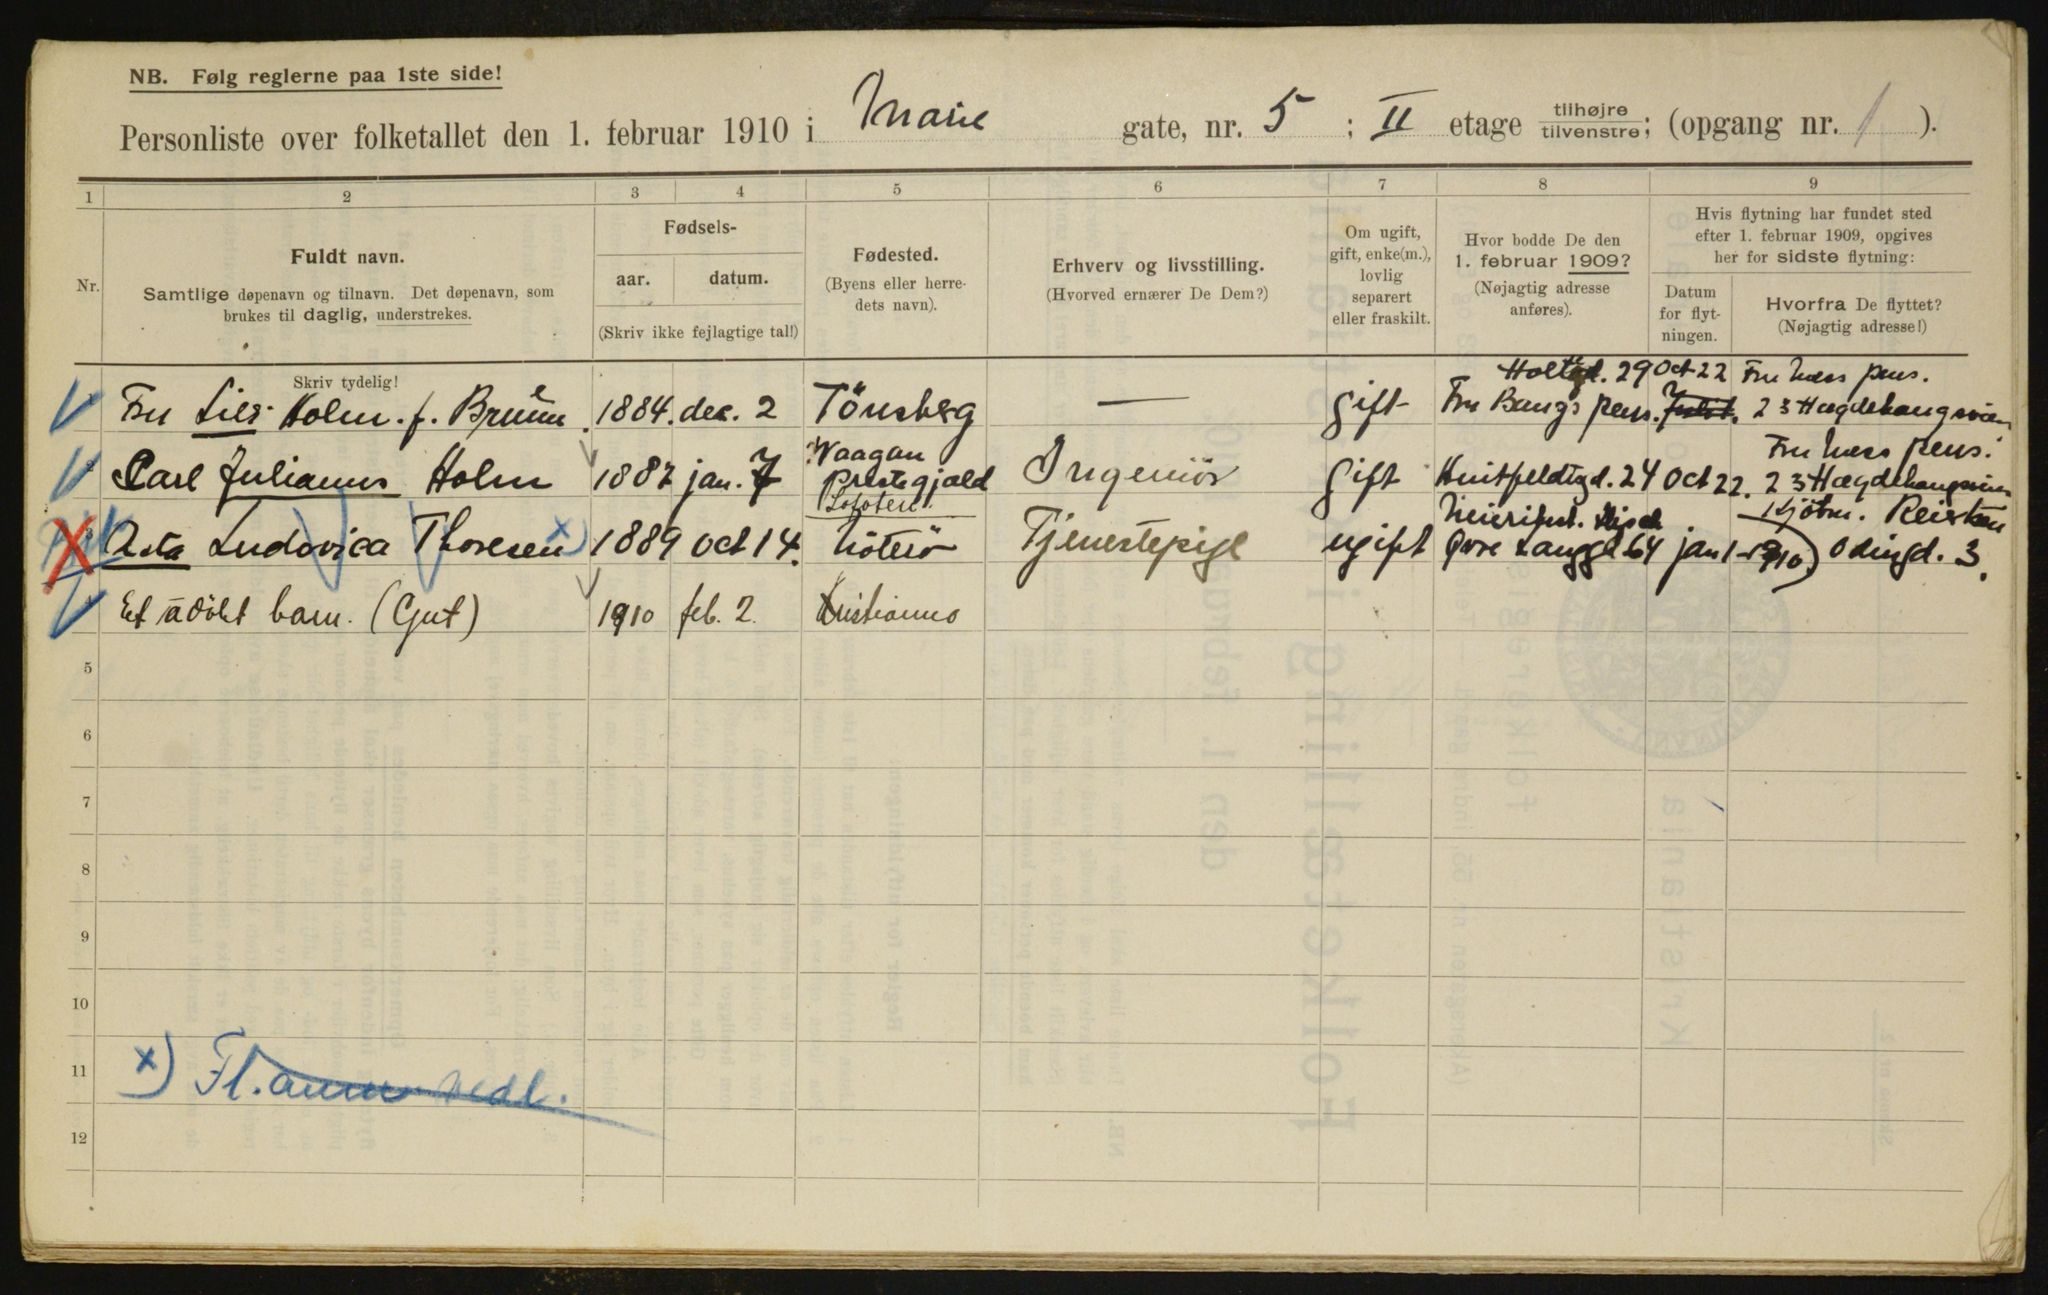 NB. Følg reglerne paa 1ste side!
Personliste over folketallet den 1. februar 1910 i Marie gate, nr. 5 ; II etage tilhøjre tilvenstre; (opgang nr. 1 ).
1 2 3 4 5 6 7 8 9
Nr.
Fuldt navn.
Samtlige døpenavn og tilnavn. Det døpenavn, som
brukes til daglig, understrekes.
Skriv tydelig!
Fødsels-
aar. datum.
(Skriv ikke fejlagtige tal!)
Fødested.
(Byens eller herre-
dets navn).
Erhverv og livsstilling.
(Hvorved ernærer De Dem?)
Om ugift,
gift, enke(m.),
lovlig
separert
eller fraskilt.
Hvor bodde De den
1. februar 1909?
(Nøjagtig adresse
anføres).
Hvis flytning har fundet sted
efter 1. februar 1909, opgives
her for sidste flytning:
Datum
for flyt-
ningen.
Hvorfra De flyttet?
(Nøjagtig adresse!)
Holtegd. 29 Oct 22 Fru Næss pens.
Fru Lies Holm. f. Bruun. 1884. dec. 2 Tönsberg — gift Fru Bangs pens. 23 Hægdehaugsveien
Vaagan Fru Næss pens.
Carl Julianus Holm 1887 jan. 7 prestegjæld Ingeniör gift Huitfeldtsgd. 24 Oct 22. 23 Hægdehaugsveien
Lofoten
Asta Ludovica Thoresen x) 1889 oct 14. Nöterö Tjenestepige ugift Øvre Langgd 64 jan 1-1910) Odingd. 3.
Et udöbt barn. (Gut) 1910 feb. 2. Kristiania
5
6
7
8
9
10
11
12
x) Fl. anm. nedl.